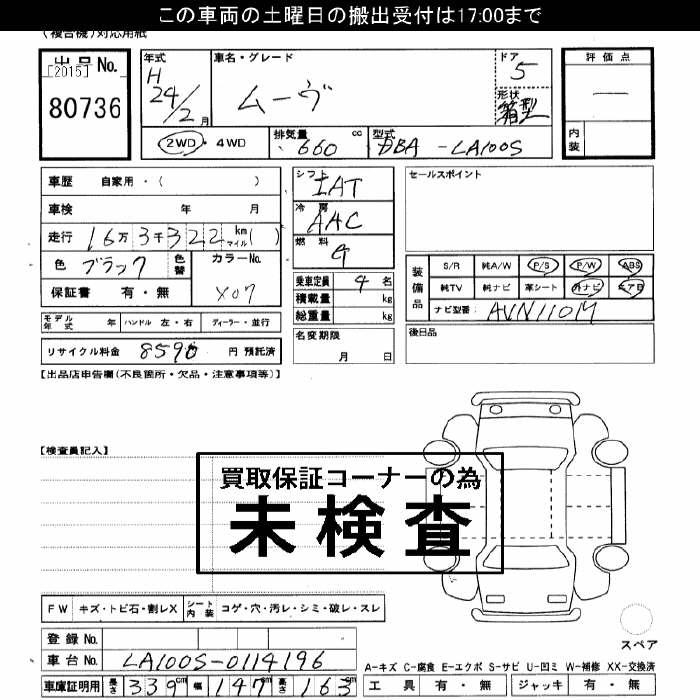 この車両の土曜日の搬出受付は17:00まで
(複合機)対応用紙
出品No.
[2015]
80736
年式
H
24/2月
車名・グレード
ムーヴ
ドア
5
形状
箱型
評価点
―
内装
2WD・4WD
排気量
660 cc
型式
DBA-LA100S
車歴 自家用・( )
車検 年 月
走行 16万3千322 km マイル( )
色 ブラック 色替 カラーNo.
X07
保証書 有・無
シフト
IAT
冷房
AAC
燃料
G
乗車定員 4名
積載量 kg
総重量 kg
セールスポイント
装備品
S/R 純A/W P/S P/W ABS
純TV 純ナビ 革シート 外ナビ エアB
ナビ型番: AVN110M
モデル年式 年 ハンドル 左・右 ディーラー・並行
リサイクル料金 8590 円 預託済
名変期限
月 日
後日品
【出品店申告欄(不良箇所・欠品・注意事項等)】
【検査員記入】
買取保証コーナーの為
未検査
FW キズ・トビ石・割レX シート内装 コゲ・穴・汚レ・シミ・破レ・スレ
登録No.
車台No. LA100S-0114196
車庫証明用 長さ 339cm 幅 147cm 高さ 163cm
スペア
A-キズ C-腐食 E-エクボ S-サビ U-凹ミ W-補修 XX-交換済
工具 有・無 ジャッキ 有・無